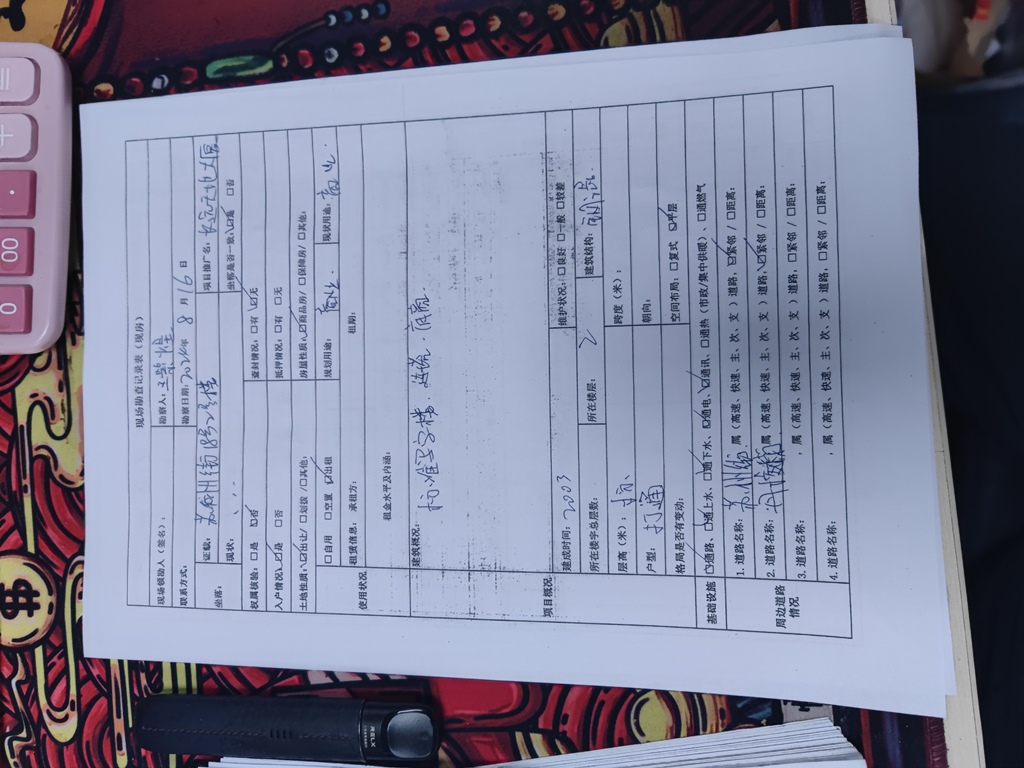 现场勘查记录表（现房）
现场领勘人（签名）： 勘察人：
联系方式： 勘察日期：2024年 8 月 16 日
坐落： 证载：苏州街18号 项目推广名：长远天地大厦
现状： 坐标是否一致：☑是 □否
权属核验：□是 ☑否 查封情况：□有 ☑无
入户情况：☑是 □否 抵押情况：□有 □无
土地性质：☑出让/□划拨/□其他： 房屋性质：☑商品房/□保障房/□其他：
使用状况 □自用 □空置 ☑出租 规划用途：商业. 现状用途：商业.
租赁信息： 承租方： 租期：
租金水平及内涵：
项目概况 建筑概况：
标准写字楼.
建成时间：2003 维护状况：□良好 □一般 □较差
所在楼宇总层数： 所在楼层：2 建筑结构：
层高（米）： 跨度（米）：
户型：打通 朝向：
格局是否有变动： 空间布局：□复式 ☑平层
基础设施 ☑通路、☑通上水、☑通下水、☑通电、☑通讯、□通热（市政/集中供暖）、□通燃气
周边道路情况 1.道路名称：苏州街，属（高速、快速、主、次、支）道路，☑紧邻/□距离：
2.道路名称： ，属（高速、快速、主、次、支）道路，☑紧邻/□距离：
3.道路名称： ，属（高速、快速、主、次、支）道路，□紧邻/□距离：
4.道路名称： ，属（高速、快速、主、次、支）道路，□紧邻/□距离：
00
0
RELX